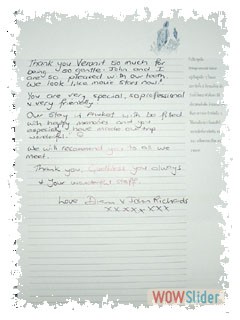 Thank you Veranit so much for
being so gentle. John and I
are so pleased with our teeth
We look like movie stars now!
You are very special, so professional
x very friendly!
Our stay in Phuket will be filled
with happy memories and you
especially have made our trip
wonderful.
We will recommend you to all we
meet.
Thank you, God bless you always.
& Your wonderful staff.
Love Diann x John Richards
xxxxx xxx
WOWSlider